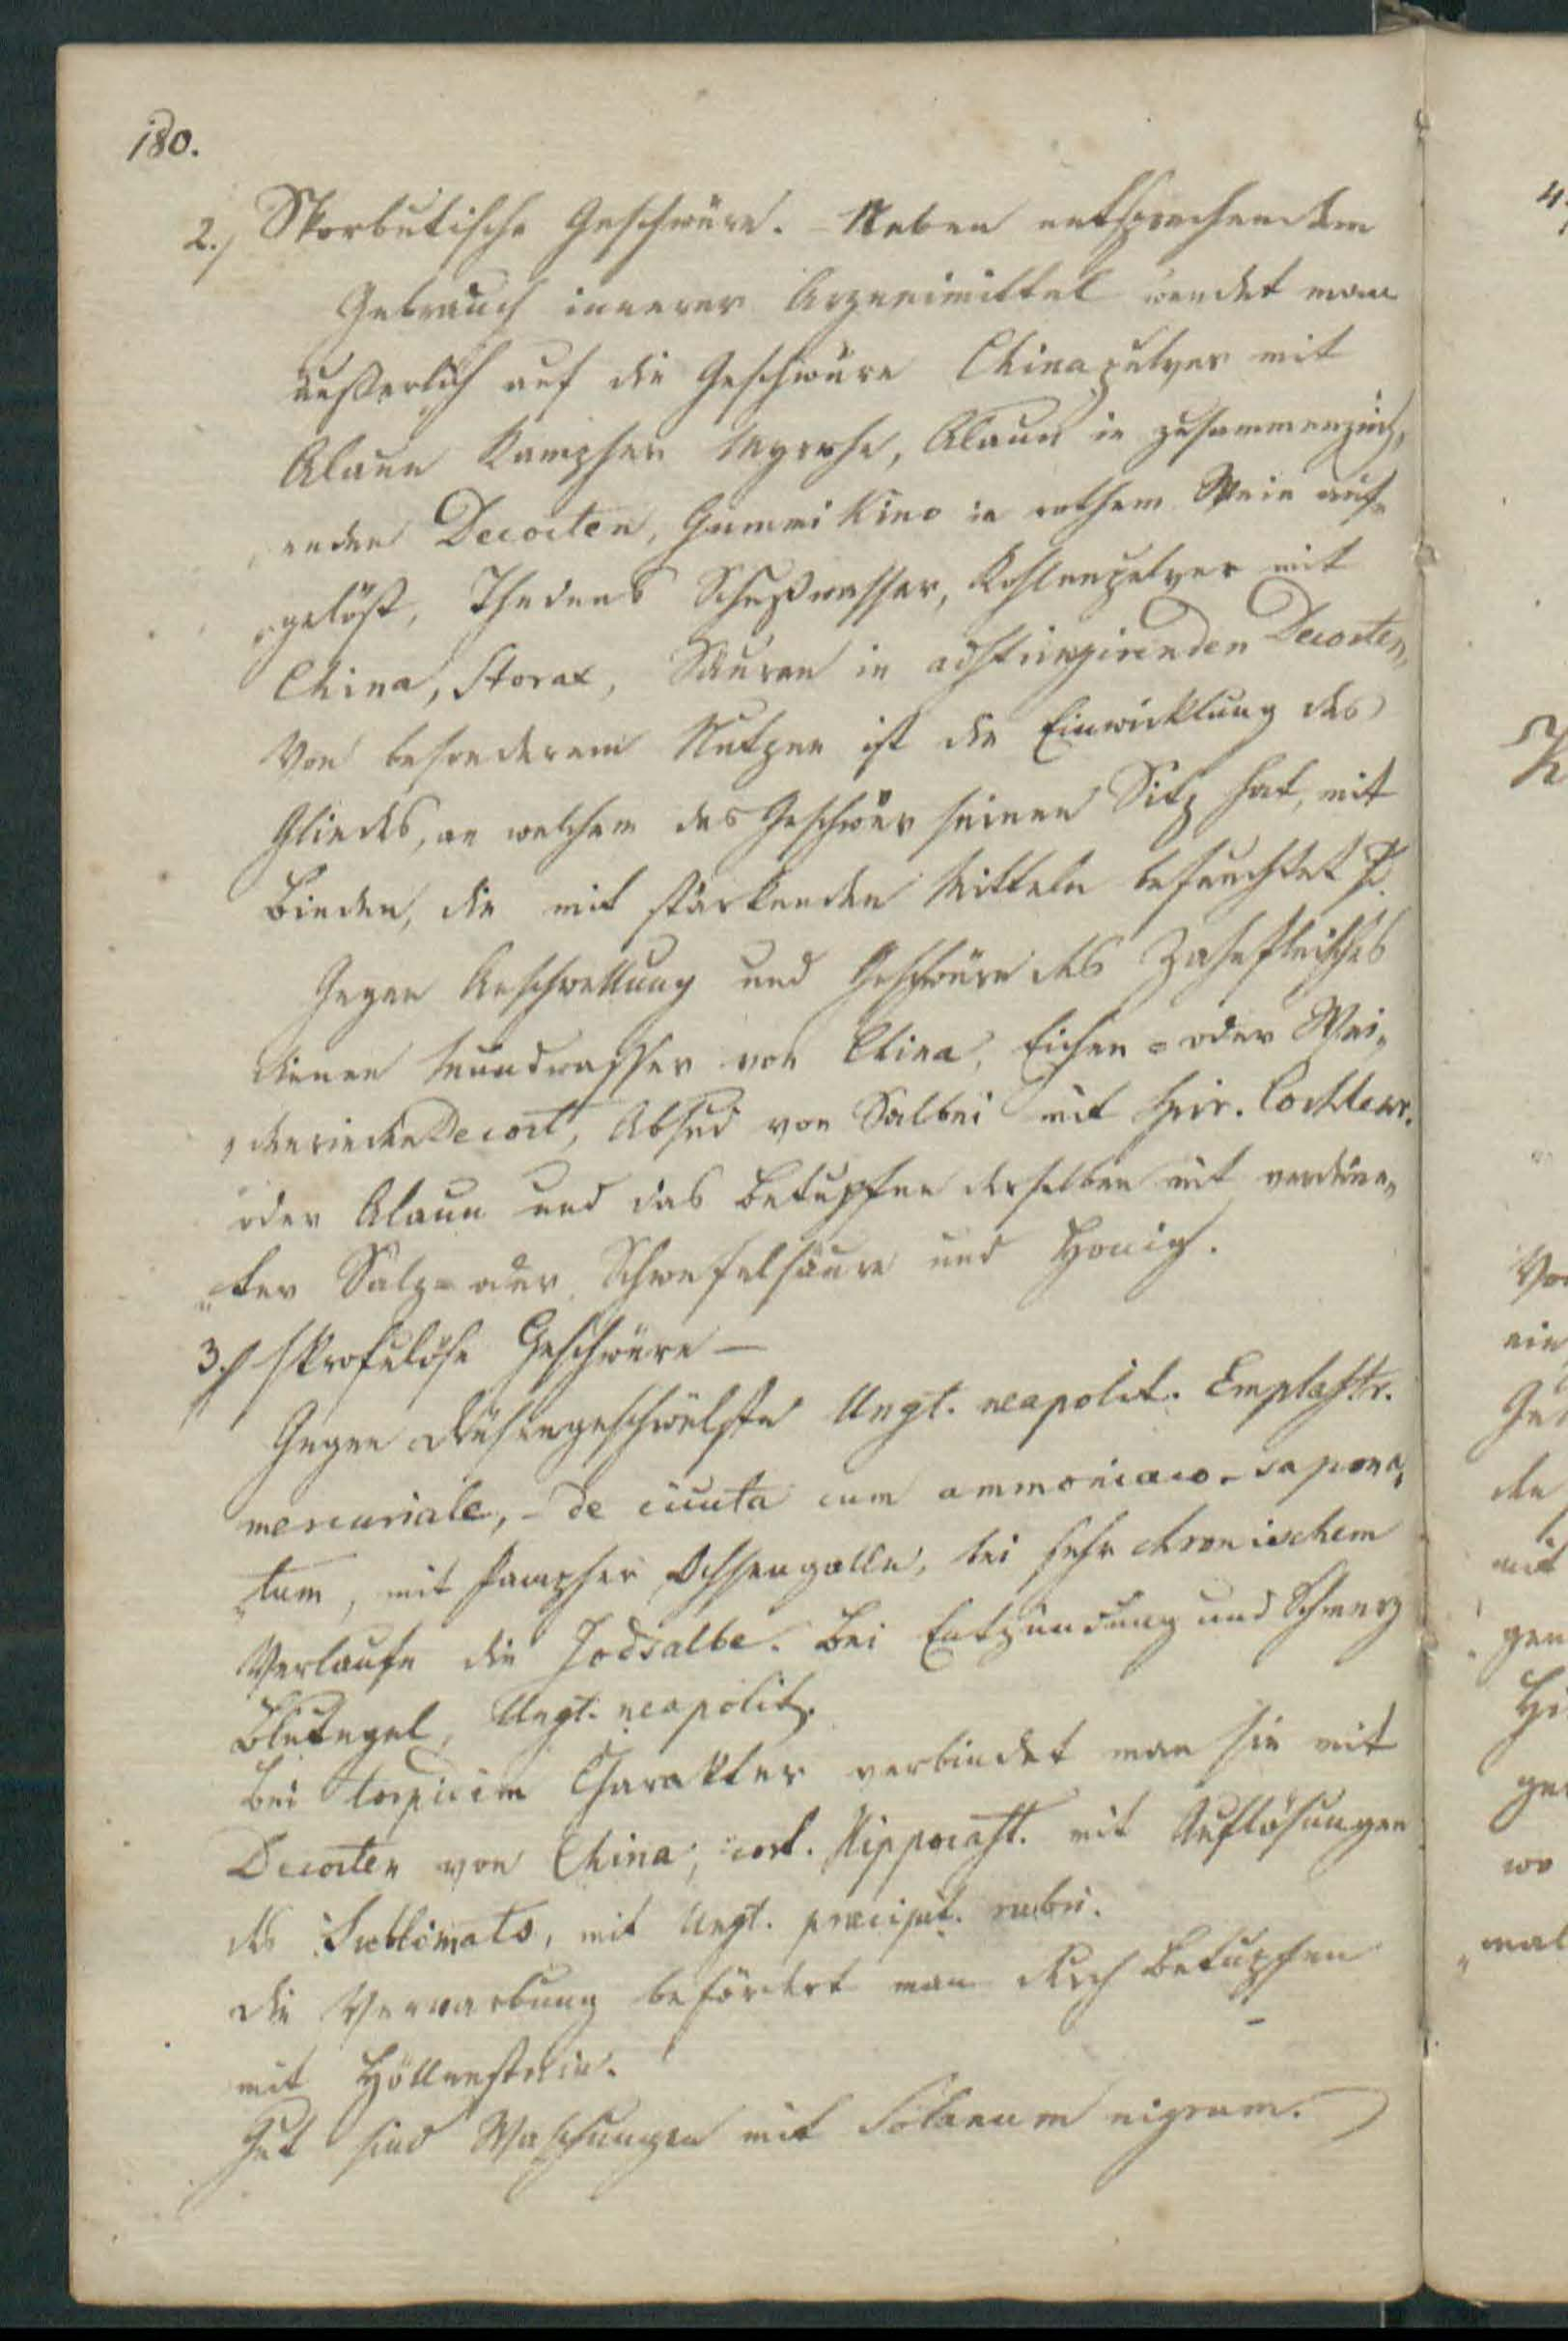 180.
2.) Skorbutische Geschwüre. - Neben entsprechendem
Gebrauch innerer Arzneimittel wendet man
äußerlich auf die Geschwüre Chinapulver mit
Alaun Kampher Myrrhe, Alaun in zusammenzieh„
enden Decocten, Gummi Kino in rothem Wein auf„
„gelöst, Thedens Schußwasser, Kohlenpulver mit
China, Storax, Säuren in adstringirenden Decocten,
Von besonderem Nutzen ist die Einwicklung des
Gliedes, an welchem das Geschwür seinen Sitz hat, mit
Binden, die mit stärkenden Mitteln befeuchtet
Gegen Anschwellung und Geschwüre des Zahnfleisches
dienen Mundwasser von China, Eichen= oder Wei„
„denrinden Decoct, Absud von Salbei mit Spir. Cochlear.
oder Alaun und das Betupfen derselben mit verdünn„
„ter Salz= oder Schwefelsäure und Honig.
3.) Skrofulöse Geschwüre —
Gegen Drüsengeschwülste Ungt. neapolit. Emplastr.
mercuriale, - de cicuta cum ammoniaco - sapona„
„tum, mit Kampher Ochsengalle, bei sehr chronischem
Verlaufe die Jodsalbe. Bei Entzündung und Schmerz
Blutegel, Ungt. neapolit.
Bei torpidem Charakter verbindet man sie mit
Decocten von China, cort. Hippocast. mit Auflösungen
des Sublimats, mit Ungt. præcipit. rubri.
Die Vernarbung befördert man durch Betupfen
mit Höllenstein.
Gut sind Waschungen mit Solanum nigrum.